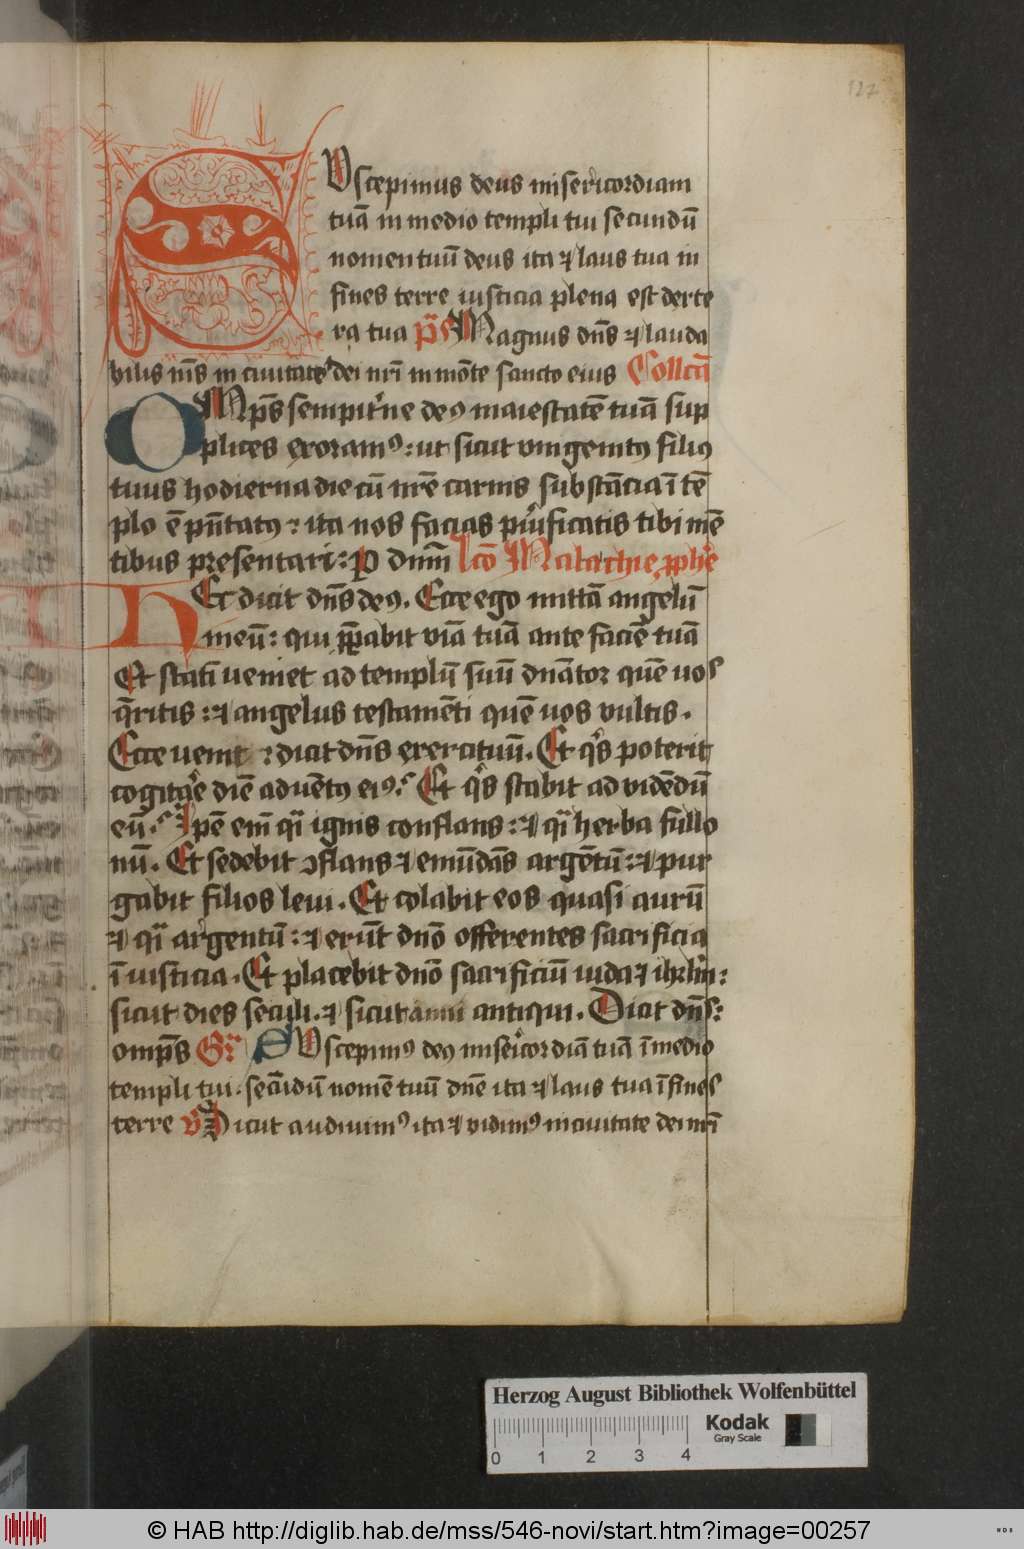 127
SVscepimus deus misericordiam
tuā in medio templi tui secundū
nomen tuū deus ita ⁊ laus tua in
fines terre iusticia plena est dexte
ra tua p̄s Magnus dn̄s ⁊ lauda
bilis nīs in ciuitate dei nr̄i in mōte sancto eius Collcā
OMp̄s sempitꝰne deꝰ maiestatē tuā sup
plices exoramꝰ: ut sicut vnigenitꝰ filiꝰ
tuus hodierna die cū nr̄e carnis substācia ī tē
plo ē pn̄tatꝰ: ita nos facias pu̇rificatis tibi mē
tibus presentari: P dnm̄ Lcō Malachie ꝓphe
HEc dicit dn̄s deꝰ. Ecce ego mittā angelū
meū: qui p̄parabit viā tuā ante faciē tuā
Et stati ueniet ad templū suū dnātor quē uos
q̄ritis: ⁊ angelus testamēti quē uos vultis.
Ecce uenit: dicit dn̄s exercituū. Et qⁱs poterit
cogitare diē aduētꝰ eiꝰ. Et qⁱs stabit ad vidēdū
eū. Ipē em̄ qͣi ignis conflans: ⁊ qͣi herba fullo
nū. Et sedebit ꝯflans ⁊ emūdās argētū: ⁊ pur
gabit filios leui. Et colabit eos quasi aurū
⁊ qͣi argentū: ⁊ erūt dnō offerentes sacrificia
ī iusticia. Et placebit dnō sacrificiū iuda ⁊ ihrlm̄:
sicut dies seculi. ⁊ sicut anni antiqui. Dicit dn̄s:
omp̄s Gr̄ SVscepimꝰ deꝰ misericordiā tuā ī medio
templi tui. secūdū nomē tuū dnē ita ⁊ laus tua ī fines
terre v̄ Sicut audiuimꝰ ita ⁊ vidimꝰ in ciuitate dei nr̄i
Herzog August Bibliothek Wolfenbüttel
Kodak
Gray Scale
0 1 2 3 4
© HAB http://diglib.hab.de/mss/546-novi/start.htm?image=00257